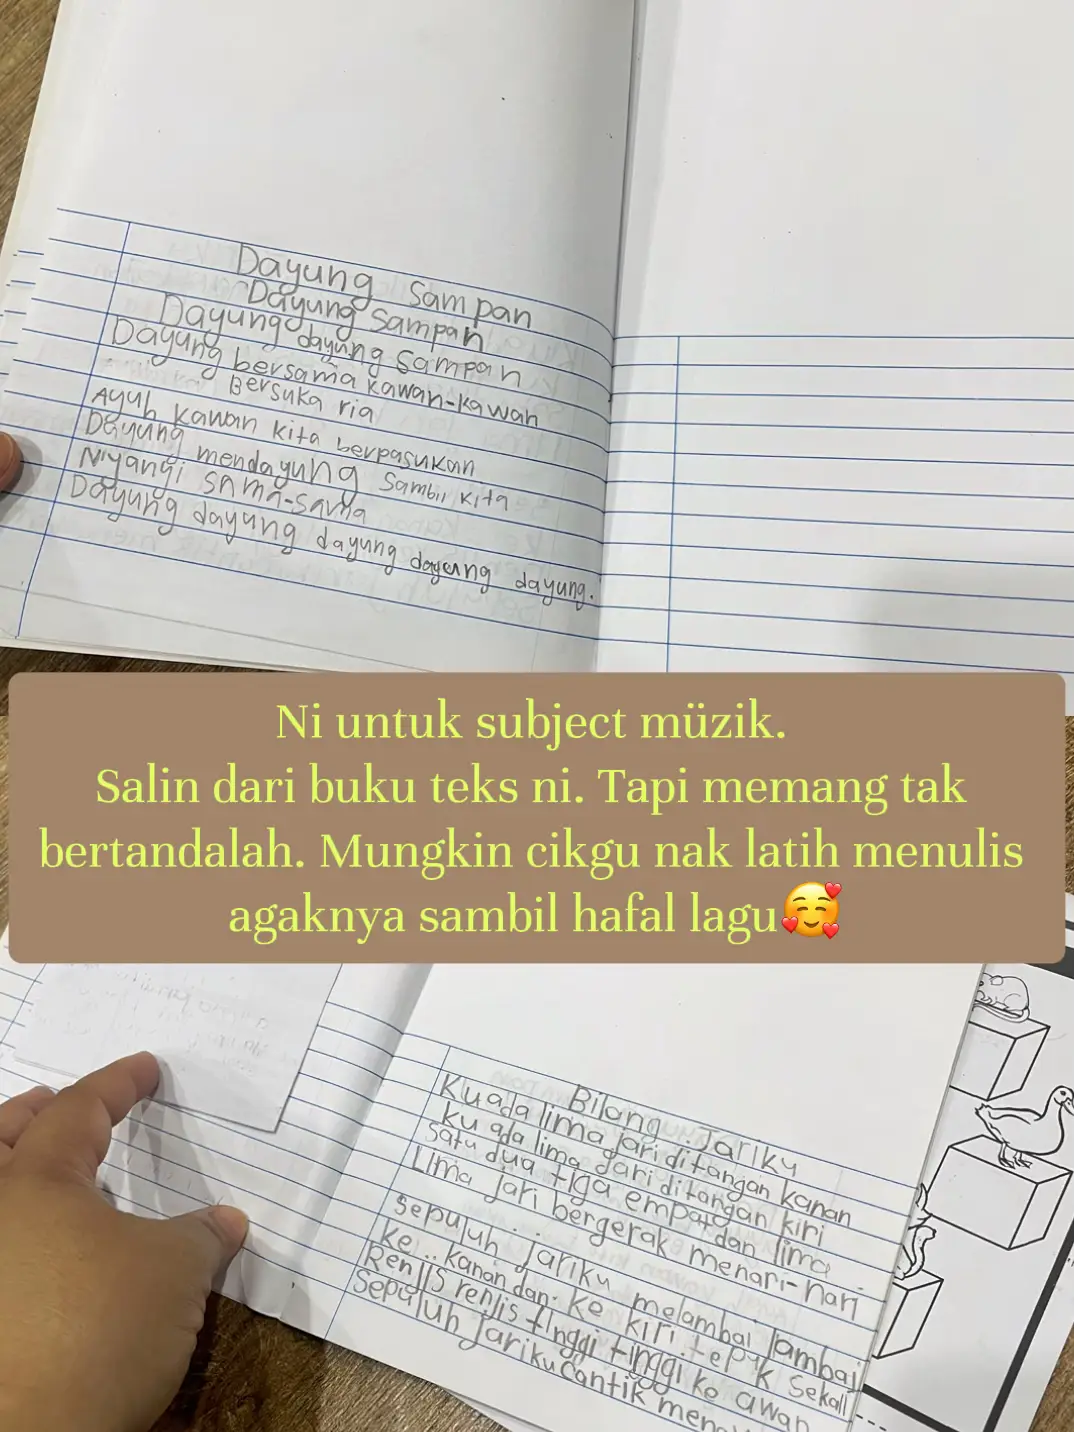 Dayung Sampan
Dayung Sampan
Dayung dayung Sampan
Dayung bersama kawan-kawan
Bersuka ria
Ayuh kawan kita berpasukan
Dayung mendayung Sambil kita
Niyangi sama-sama
Dayung dayung dayung dayung dayung.
Ni untuk subject müzik.
Salin dari buku teks ni. Tapi memang tak
bertandalah. Mungkin cikgu nak latih menulis
agaknya sambil hafal lagu🥰
Bilang Jariku
Ku ada lima jari ditangan kanan
Ku ada lima jari ditangan kiri
Satu dua tiga empat dan lima
Lima jari bergerak menari-nari
Sepuluh jariku melambai lambai
Ke kanan dan ke kiri tepuk Sekali
Renjis renjis tinggi tinggi ke awan
Sepuluh Jariku Cantik